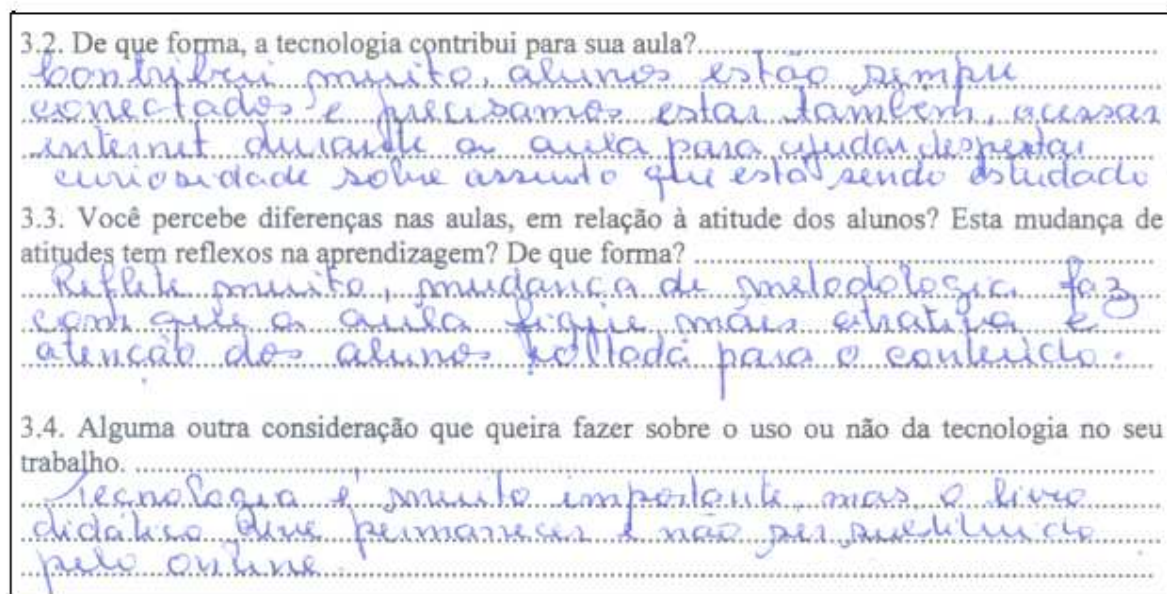 3.2. De que forma, a tecnologia contribui para sua aula?
Contribui muito, alunos estão sempre
conectados e precisamos estar também, acessar
internet durante a aula para ajudar despertar
curiosidade sobre assunto que está sendo estudado
3.3. Você percebe diferenças nas aulas, em relação à atitude dos alunos? Esta mudança de
atitudes tem reflexos na aprendizagem? De que forma?
Reflete muito, mudança de metodologia faz
com que a aula fique mais atrativa e
atenção dos alunos voltada para o conteúdo.
3.4. Alguma outra consideração que queira fazer sobre o uso ou não da tecnologia no seu
trabalho.
Tecnologia é muito importante, mas o livro
didático deve permanecer e não ser substituido
pelo online.